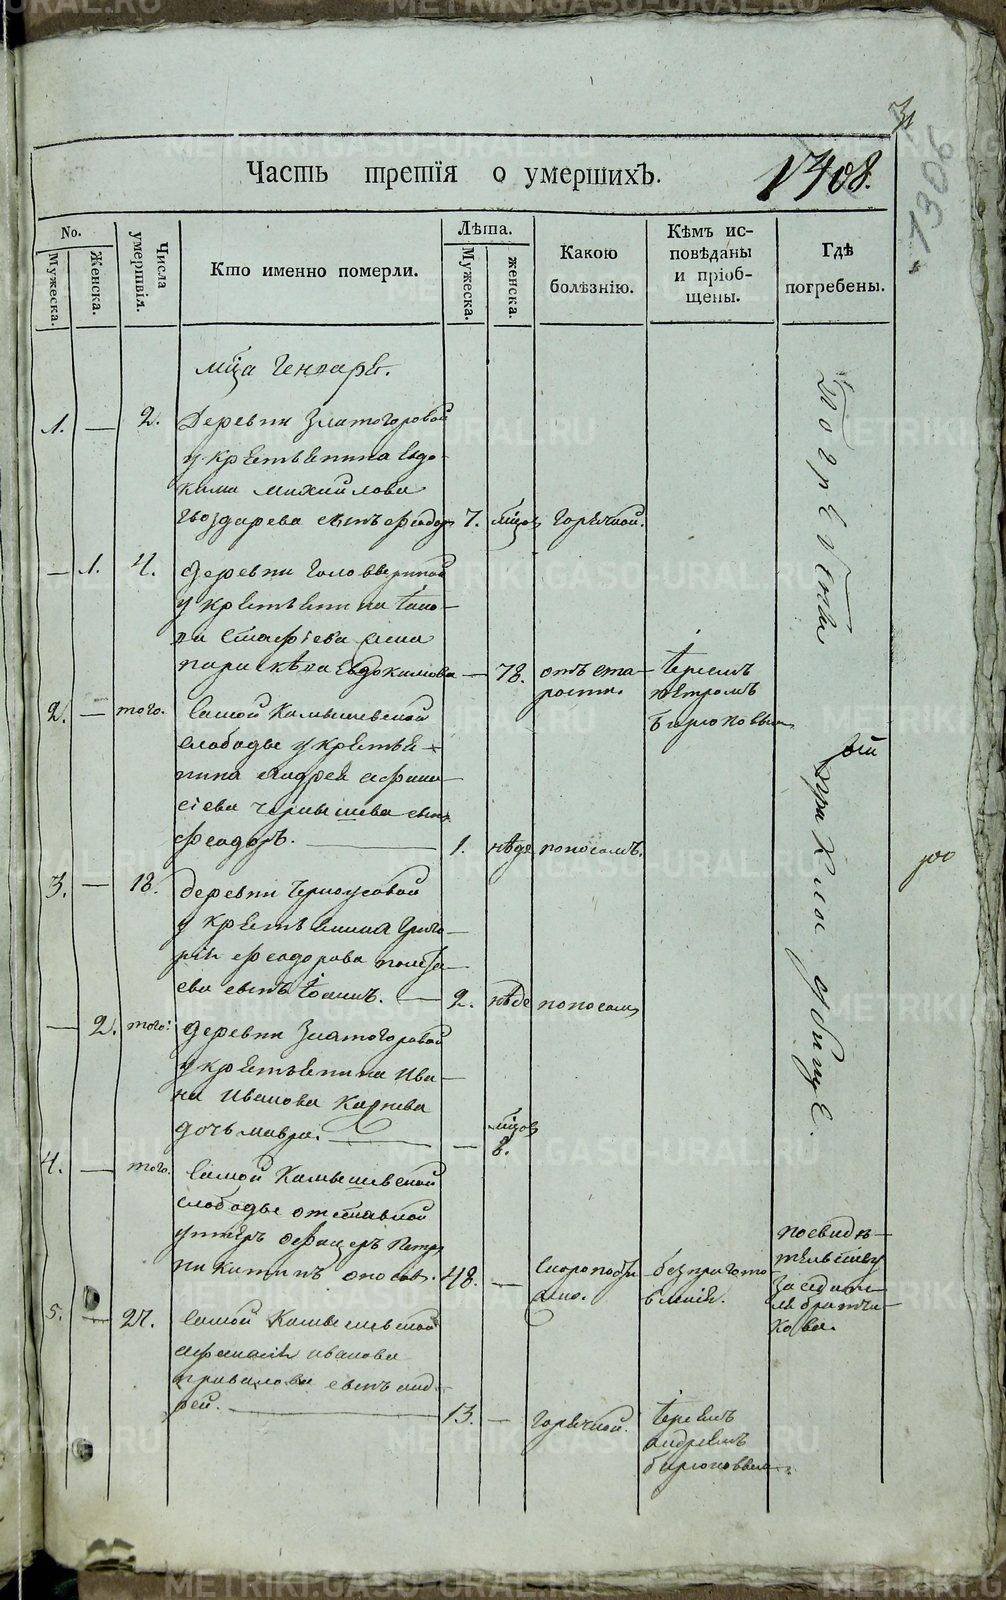 Часть третія о умершихъ.
1408.
1306
No.
Мужеска.
Женска.
Числа умертвія.
Кто именно померли.
Лѣта.
Мужеска.
женска.
Какою болѣзнію.
Кѣмъ исповѣданы и пріобщены.
Гдѣ погребены.
мца Генваря.
1. — 2. Деревни Златогоровой
у крестьянина Евдо-
кима Михайлова
Гвоздарева сынъ Феодоръ 7. мцов горячкой.
— 1. 4. Деревни Головыриной
у крестьянина
жена
параскѣва Евдокимова — 78. отъ ста-
рости.
Іереемъ
Петромъ
Бирюковым
2. — того. Самой Камышевской
слободы у крестья-
нина Андрея Афана-
сіева Чернышева сынъ
Феодоръ. 1. нѣде поносомъ.
3. — 18. деревни Черноусовой
у крестьянина Григо-
рія Феодорова
сынъ Іоаннъ. — 2. нѣде поносом
— 2. того. деревни Златогоровой
у крестьянина Ива-
на Иванова Карпева
дочь мавра. — мцов
8.
4. — того. Самой Камышевской
слободы отставной
унтеръ офицеръ Петръ
никитинъ 48. — Скоропости
жно.
без пригото
вленія.
по свидѣ-
тельству
заседате-
ля братчи-
кова.
5. — 27. Самой Камышевской
Афанасія иванова
привалова сынъ анд-
рей. 13. — Горячкой.
Іереемъ
андреемъ
бирюковым.
Погребены
при
кладбищѣ.